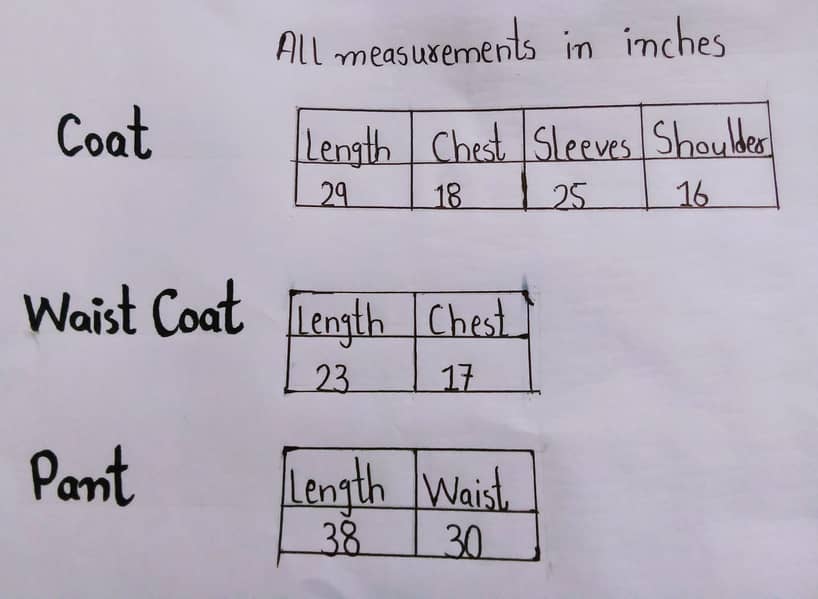 All measurements in inches
Coat
Length Chest Sleeves Shoulder
29 18 25 16
Waist Coat
Length Chest
23 17
Pant
Length Waist
38 30